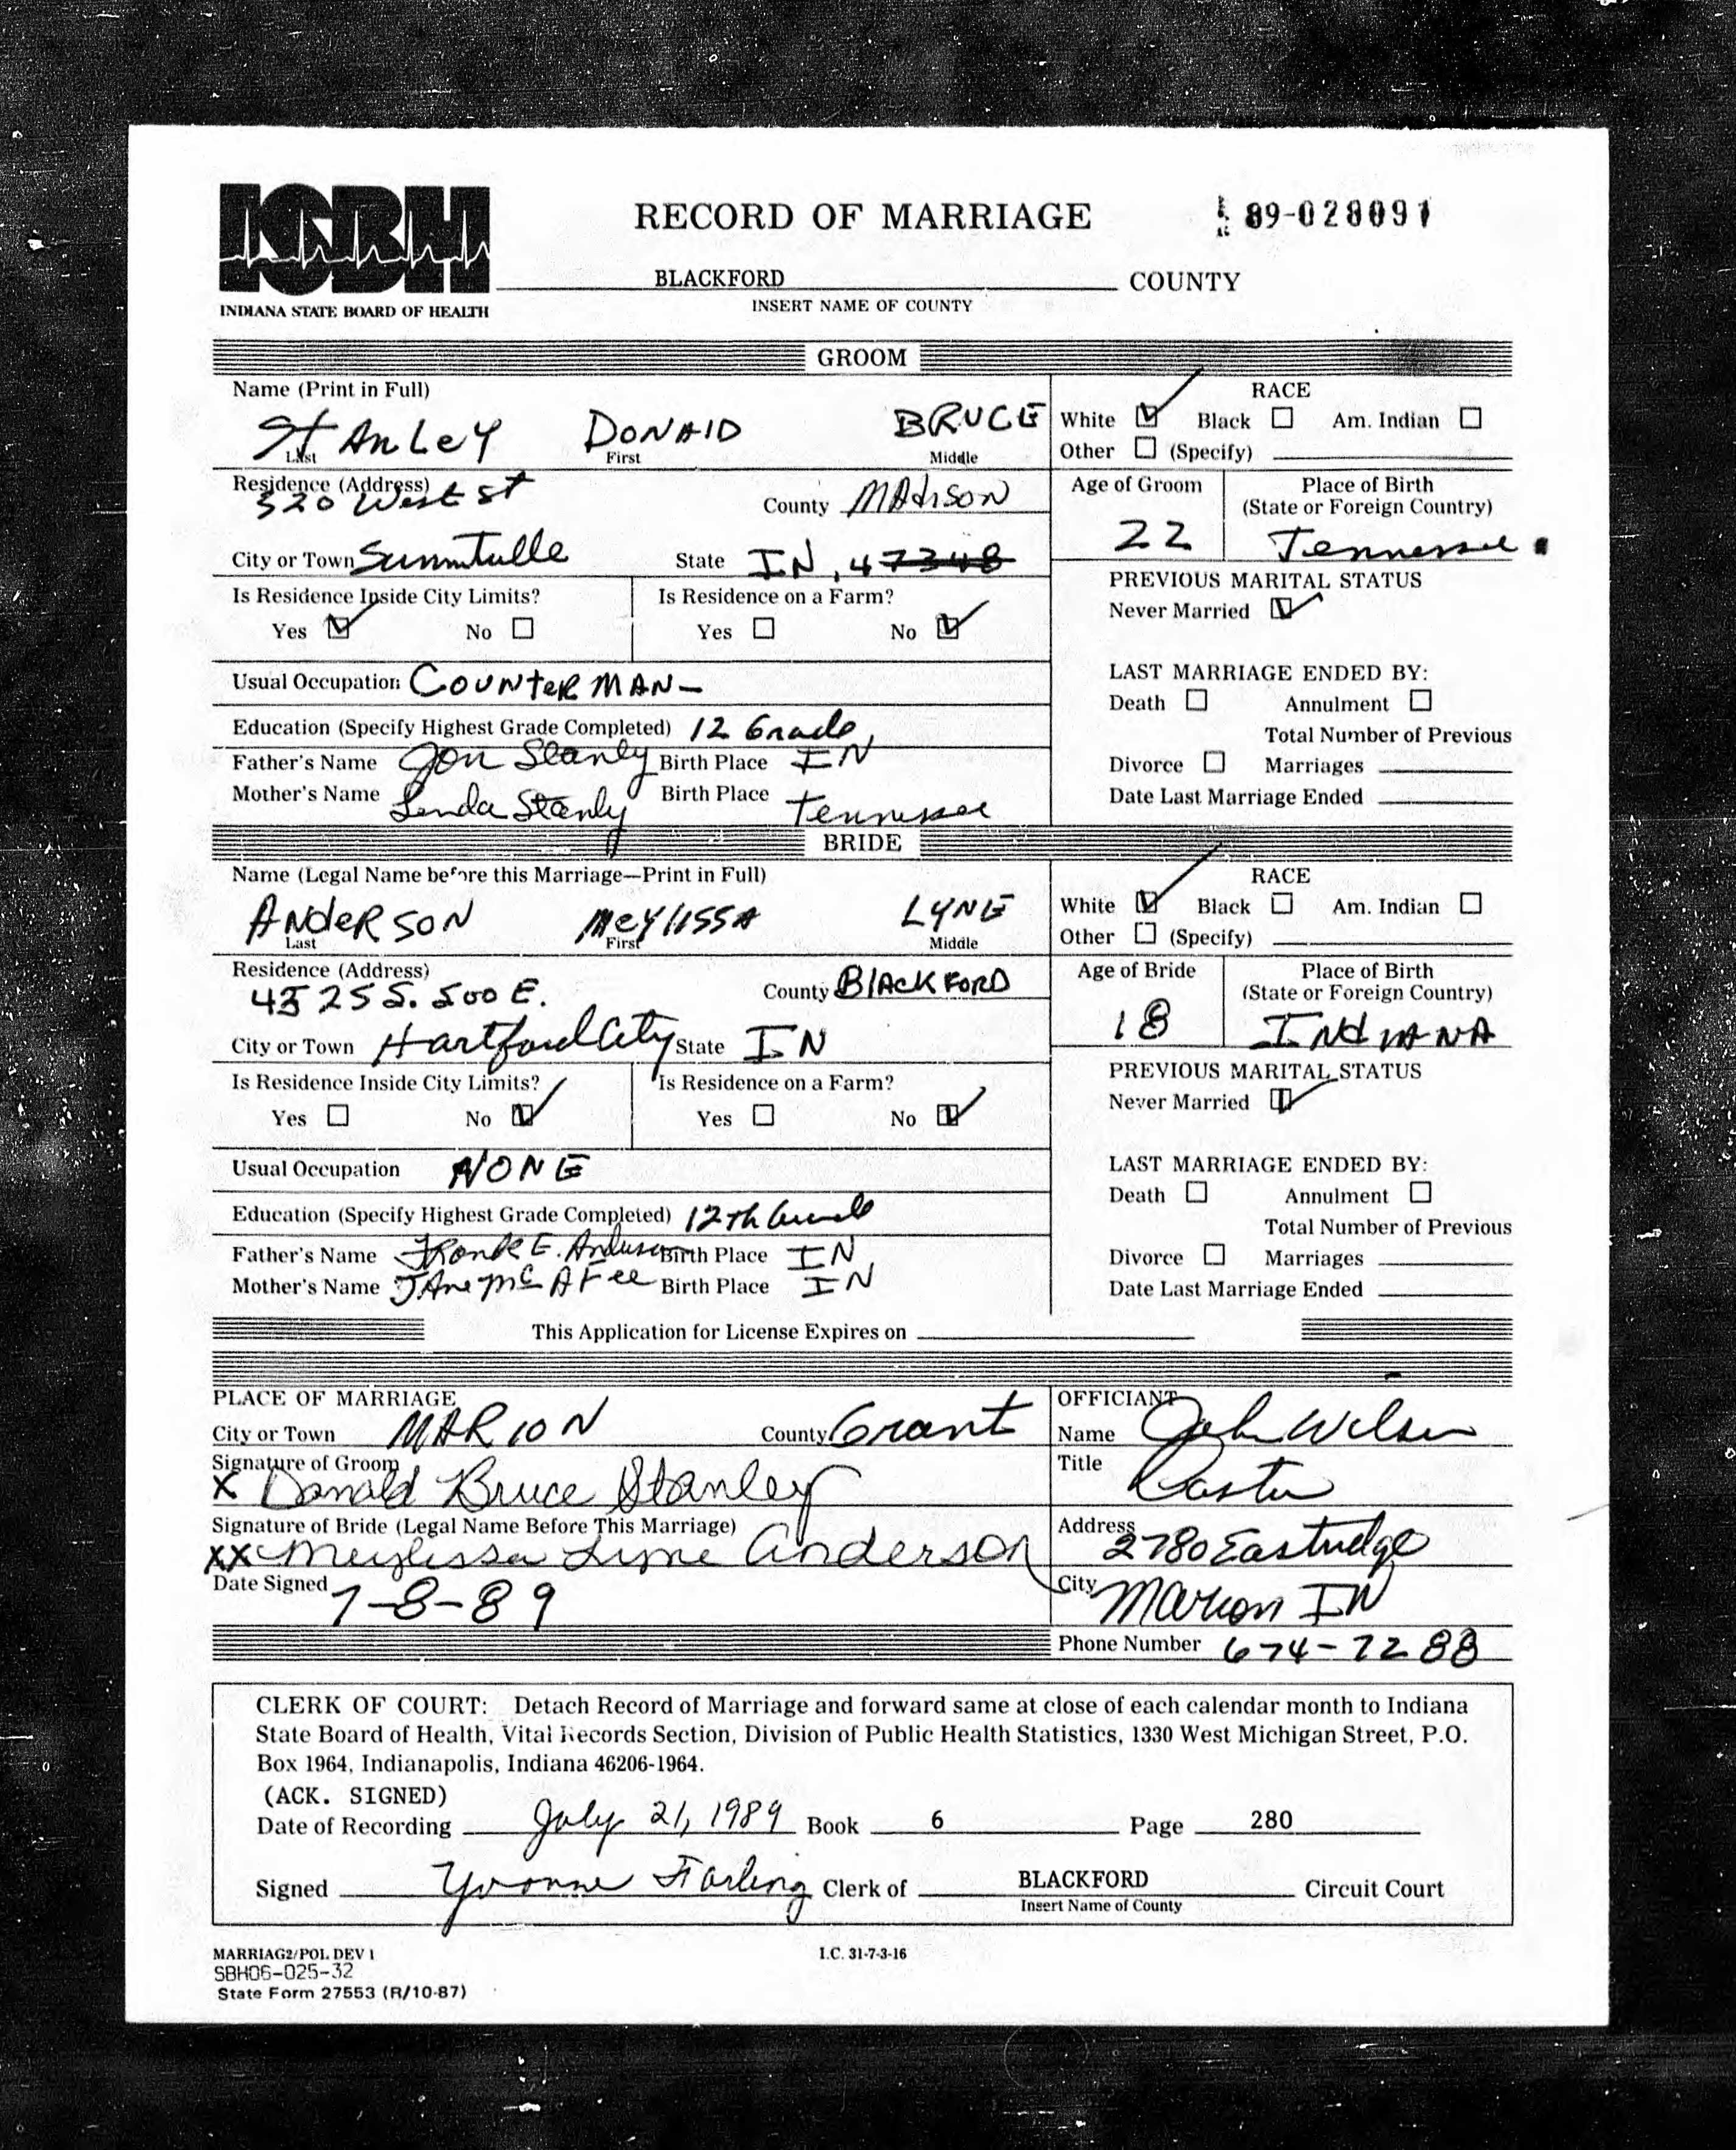 ISBH
INDIANA STATE BOARD OF HEALTH
RECORD OF MARRIAGE
89-028091
BLACKFORD COUNTY
INSERT NAME OF COUNTY
GROOM
Name (Print in Full)
StAnLeY DONAlD BRUCE
Last First Middle
RACE
White Black Am. Indian
Other (Specify)
Residence (Address)
320 West St County MAdisoN
City or Town State IN, 47348
Age of Groom
22
Place of Birth
(State or Foreign Country)
Tennessee
Is Residence Inside City Limits?
Yes No
Is Residence on a Farm?
Yes No
PREVIOUS MARITAL STATUS
Never Married
Usual Occupation COUNteR MAN-
Education (Specify Highest Grade Completed) 12 Grade
Father's Name Jon Stanly Birth Place IN
Mother's Name Linda Stanly Birth Place Tennessee
LAST MARRIAGE ENDED BY:
Death Annulment
Total Number of Previous
Divorce Marriages
Date Last Marriage Ended
BRIDE
Name (Legal Name before this Marriage—Print in Full)
ANdeRSON MeYlISSA LYNE
Last First Middle
RACE
White Black Am. Indian
Other (Specify)
Residence (Address)
4525 S. 500 E. County BlAckFoRD
City or Town Hartford City State IN
Age of Bride
18
Place of Birth
(State or Foreign Country)
INdIANA
Is Residence Inside City Limits?
Yes No
Is Residence on a Farm?
Yes No
PREVIOUS MARITAL STATUS
Never Married
Usual Occupation NONE
Education (Specify Highest Grade Completed) 12th Grade
Father's Name Frank E. Anderson Birth Place IN
Mother's Name JAne McAFee Birth Place IN
LAST MARRIAGE ENDED BY:
Death Annulment
Total Number of Previous
Divorce Marriages
Date Last Marriage Ended
This Application for License Expires on
PLACE OF MARRIAGE
City or Town MARION County Grant
Signature of Groom
X Donald Bruce Stanley
Signature of Bride (Legal Name Before This Marriage)
XX Meylissa Lyne Anderson
Date Signed 7-8-89
OFFICIANT
Name John Wilson
Title Pastor
Address 2780 Eastridge
City Marion IN
Phone Number 674-7288
CLERK OF COURT: Detach Record of Marriage and forward same at close of each calendar month to Indiana
State Board of Health, Vital Records Section, Division of Public Health Statistics, 1330 West Michigan Street, P.O.
Box 1964, Indianapolis, Indiana 46206-1964.
(ACK. SIGNED)
Date of Recording July 21, 1989 Book 6 Page 280
Signed Yvonne Farling Clerk of BLACKFORD Circuit Court
Insert Name of County
MARRIAG2/POL DEV 1
SBH06-025-32
State Form 27553 (R/10-87)
I.C. 31-7-3-16